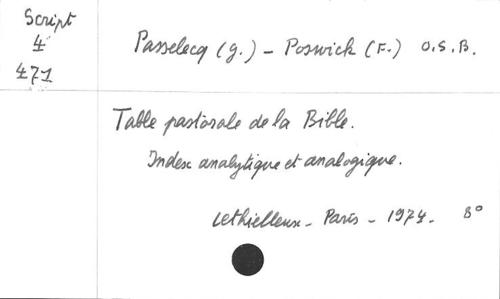 Script
4
471
Passelecq (G.) - Poswick (F.) O.S.B.
Table pastorale de la Bible.
Index analytique et analogique.
Lethielleux - Paris - 1974. 8°